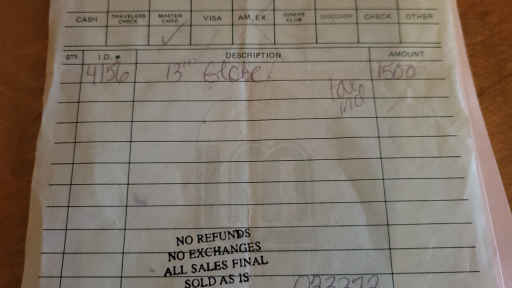 CASH TRAVELERS CHECK MASTER CARD VISA AM. EX. DINERS CLUB DISCOVER CHECK OTHER
QTY. I.D. # DESCRIPTION AMOUNT
4156 13" Globe 1500
NO REFUNDS
NO EXCHANGES
ALL SALES FINAL
SOLD AS IS